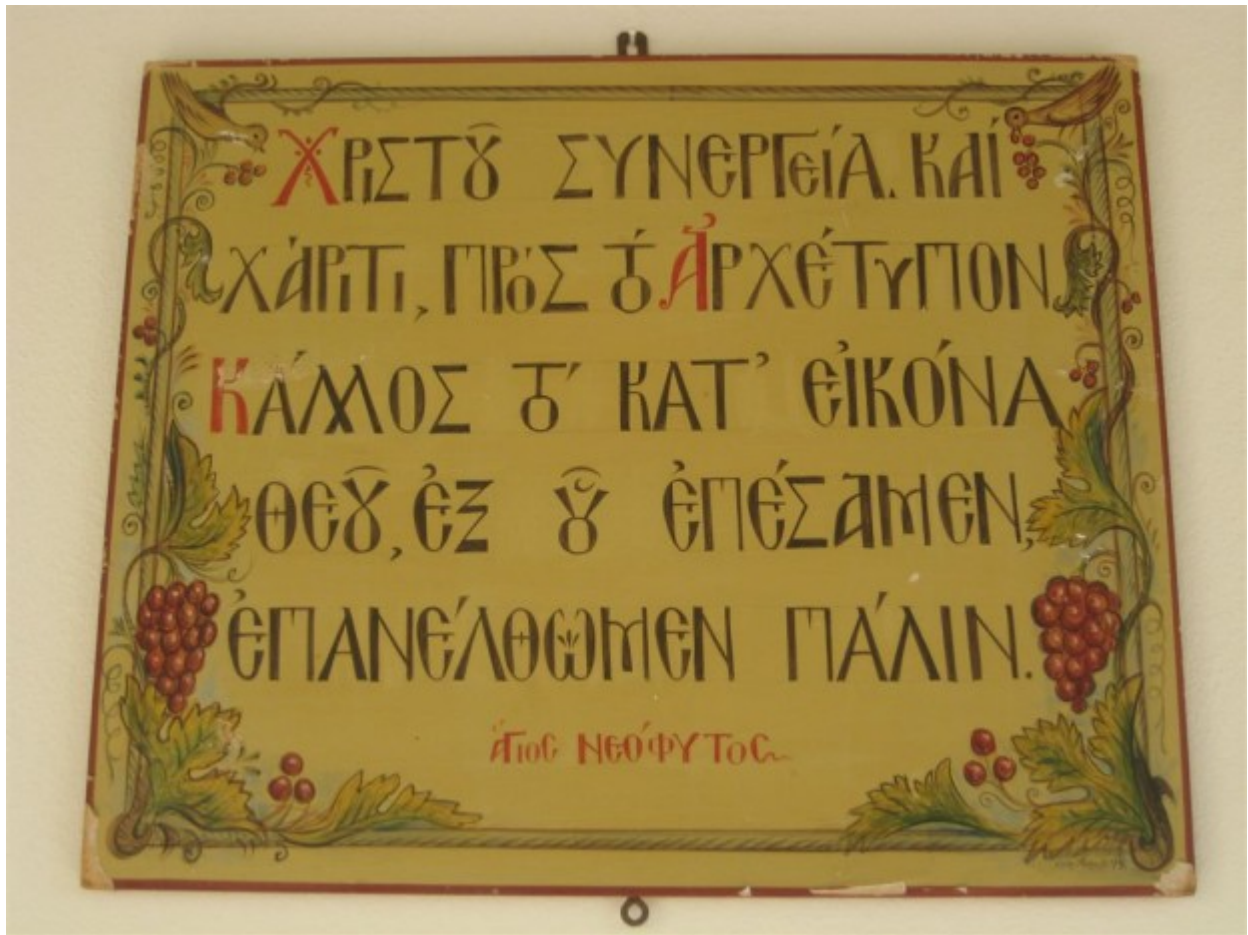 Χριστοῦ ΣΥΝΕΡΓείᾼ ΚΑΊ
ΧΆΡΙΤΙ, ΠΡΌΣ ΤΌ ἈΡΧΈΤΥΠΟΝ
ΚΆΛΛΟΣ ΤΌ ΚΑΤ’ ΕἸΚΌΝΑ
ΘΕΟῦ, ἘΞ ΟὟ ἘΠΈΣΑΜΕΝ,
ἘΠΑΝΈΛΘΩΜΕΝ ΠΆΛΙΝ.
ἍΓΙΟΣ ΝΕΌΦΥΤΟΣ